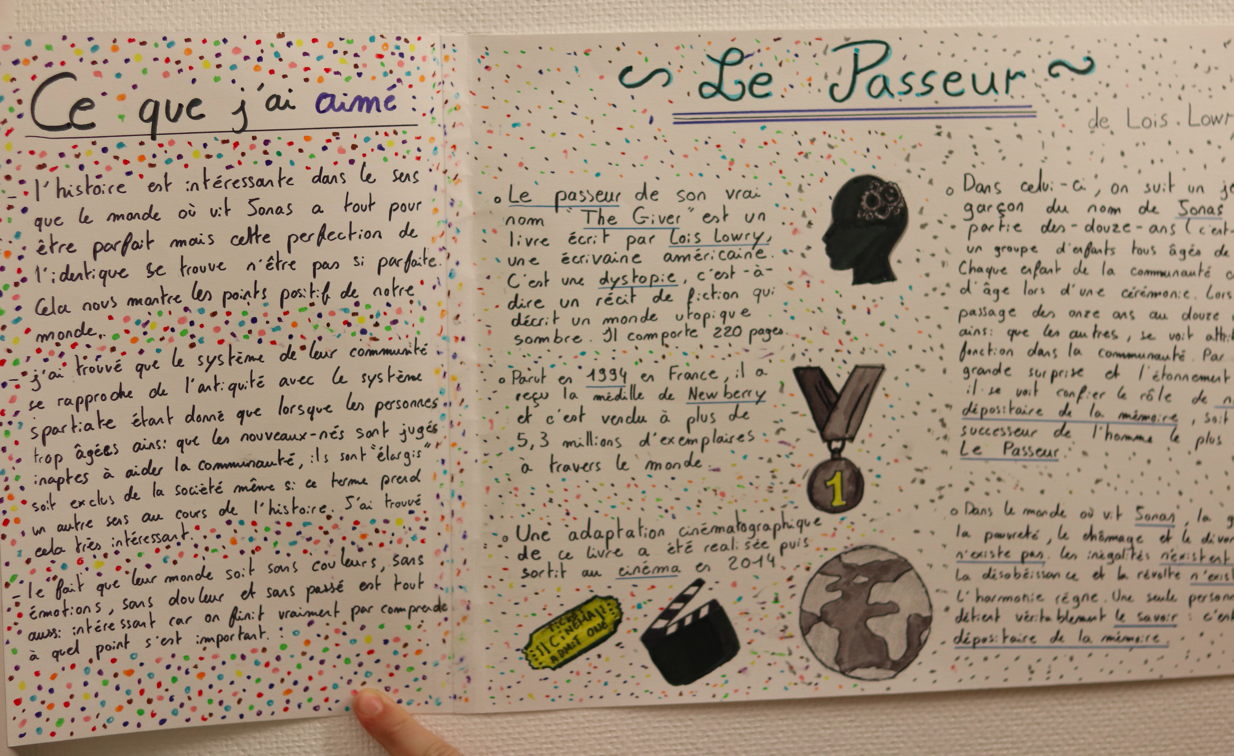 Ce que j'ai aimé :
- l'histoire est intéressante dans le sens
que le monde où vit Jonas a tout pour
être parfait mais cette perfection de
l'identique se trouve n'être pas si parfaite.
Cela nous montre les points positif de notre
monde.
- j'ai trouvé que le système de leur communité
se rapproche de l'antiquité avec le système
spartiate étant donné que lorsque les personnes
trop âgées ainsi que les nouveaux-nés sont jugés
inaptes à aider la communauté, ils sont "élargis"
soit exclus de la société même si ce terme prend
un autre sens au cours de l'histoire. J'ai trouvé
cela très intéressant.
- le fait que leur monde soit sans couleurs, sans
émotions, sans douleur et sans passé est tout
aussi intéressant car on finit vraiment par comprendre
à quel point s'est important.
~ Le Passeur ~
de Lois Lowr
Le passeur de son vrai
nom "The Giver" est un
livre écrit par Lois Lowry,
une écrivaine américaine.
C'est une dystopie, c'est-à-
dire un récit de fiction qui
décrit un monde utopique
sombre. Il comporte 220 pages.
Parut en 1994 en France, il a
reçu la médille de Newberry
et c'est vendu à plus de
5,3 millions d'exemplaires
a travers le monde.
Une adaptation cinématographique
de ce livre a été realisée puis
sortit au cinéma en 2014
TICKET
CINÉMA
ADMIT ONE
1
Dans celui-ci, on suit un
garçon du nom de Jonas
partie des-douze-ans (c'est-
un groupe d'enfants tous âgés de
Chaque enfant de la communauté
d'âge lors d'une cérémonie. Lors
passage des onze ans au douze
ainsi que les autres, se voit
fonction dans la communauté. Par
grande surprise et l'étonnement
il se voit confier le rôle de
dépositaire de la mémoire, soit
successeur de l'homme le plus
Le Passeur.
Dans le monde où vit Jonas, la
la pauvreté, le chômage et le
n'existe pas, les inégalités n'existent
La désobéissance et la révolte
l'harmonie règne. Une seule
détient véritablement le savoir : c'est
dépositaire de la mémoire.